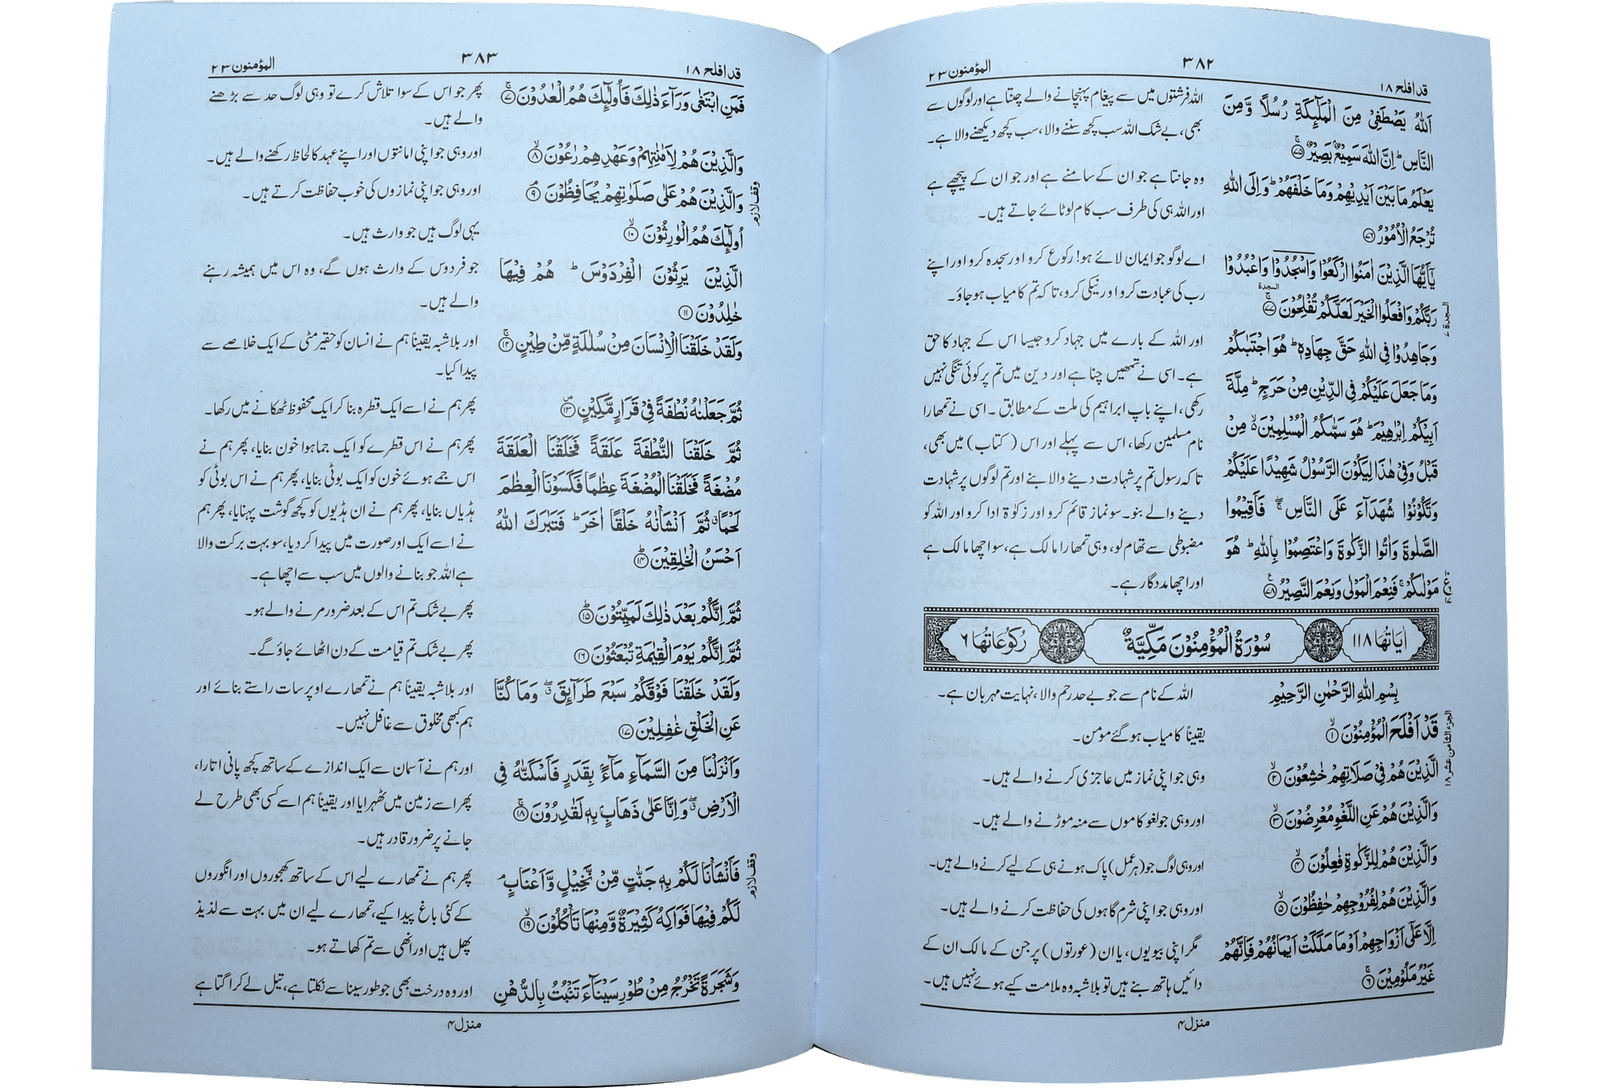 قد افلح ۱۸
۳۸۲
المؤمنون ۲۳
اَللّٰهُ يَصْطَفِيْ مِنَ الْمَلٰٓئِكَةِ رُسُلًا وَّمِنَ
النَّاسِ ؕ اِنَّ اللّٰهَ سَمِيْعٌۢ بَصِيْرٌ ۚ ﴿۷۵﴾
يَعْلَمُ مَا بَيْنَ اَيْدِيْهِمْ وَمَا خَلْفَهُمْ ؕ وَاِلَى اللّٰهِ
تُرْجَعُ الْاُمُوْرُ ﴿۷۶﴾
يٰۤاَيُّهَا الَّذِيْنَ اٰمَنُوا ارْكَعُوْا وَاسْجُدُوْا وَاعْبُدُوْا
رَبَّكُمْ وَافْعَلُوا الْخَيْرَ لَعَلَّكُمْ تُفْلِحُوْنَ ۩ ﴿۷۷﴾
وَجَاهِدُوْا فِي اللّٰهِ حَقَّ جِهَادِهٖ ؕ هُوَ اجْتَبٰىكُمْ
وَمَا جَعَلَ عَلَيْكُمْ فِي الدِّيْنِ مِنْ حَرَجٍ ؕ مِلَّةَ
اَبِيْكُمْ اِبْرٰهِيْمَ ؕ هُوَ سَمّٰىكُمُ الْمُسْلِمِيْنَ ۙ۬ مِنْ
قَبْلُ وَفِيْ هٰذَا لِيَكُوْنَ الرَّسُوْلُ شَهِيْدًا عَلَيْكُمْ
وَتَكُوْنُوْا شُهَدَآءَ عَلَى النَّاسِ ۖۚ فَاَقِيْمُوا
الصَّلٰوةَ وَاٰتُوا الزَّكٰوةَ وَاعْتَصِمُوْا بِاللّٰهِ ؕ هُوَ
مَوْلٰىكُمْ ۚ فَنِعْمَ الْمَوْلٰى وَنِعْمَ النَّصِيْرُ ﴿۷۸﴾
اللہ فرشتوں میں سے پیغام پہنچانے والے چنتا ہے اور لوگوں سے
بھی، بے شک اللہ سب کچھ سننے والا، سب کچھ دیکھنے والا ہے۔
وہ جانتا ہے جو ان کے سامنے ہے اور جو ان کے پیچھے ہے
اور اللہ ہی کی طرف سب کام لوٹائے جاتے ہیں۔
اے لوگو جو ایمان لائے ہو! رکوع کرو اور سجدہ کرو اور اپنے
رب کی عبادت کرو اور نیکی کرو، تاکہ تم کامیاب ہو جاؤ۔
اور اللہ کے بارے میں جہاد کرو جیسا اس کے جہاد کا حق
ہے۔ اسی نے تمھیں چنا ہے اور دین میں تم پر کوئی تنگی نہیں
رکھی، اپنے باپ ابراہیم کی ملت کے مطابق۔ اسی نے تمھارا
نام مسلمین رکھا، اس سے پہلے اور اس (کتاب) میں بھی،
تاکہ رسول تم پر شہادت دینے والا بنے اور تم لوگوں پر شہادت
دینے والے بنو۔ سو نماز قائم کرو اور زکوٰۃ ادا کرو اور اللہ کو
مضبوطی سے تھام لو، وہی تمھارا مالک ہے، سو اچھا مالک ہے
اور اچھا مددگار ہے۔
السجدة ۷
اٰیَاتُهَا ۱۱۸
سُوْرَةُ الْمُؤْمِنُوْنَ مَكِّيَّةٌ
رُكُوْعَاتُهَا ۶
بِسْمِ اللّٰهِ الرَّحْمٰنِ الرَّحِيْمِ
اللہ کے نام سے جو بے حد رحم والا، نہایت مہربان ہے۔
قَدْ اَفْلَحَ الْمُؤْمِنُوْنَ ۙ ﴿۱﴾
یقیناً کامیاب ہوگئے مومن۔
الَّذِيْنَ هُمْ فِيْ صَلَاتِهِمْ خٰشِعُوْنَ ۙ ﴿۲﴾
وہی جو اپنی نماز میں عاجزی کرنے والے ہیں۔
وَالَّذِيْنَ هُمْ عَنِ اللَّغْوِ مُعْرِضُوْنَ ۙ ﴿۳﴾
اور وہی جو لغو کاموں سے منہ موڑنے والے ہیں۔
وَالَّذِيْنَ هُمْ لِلزَّكٰوةِ فٰعِلُوْنَ ۙ ﴿۴﴾
اور وہی لوگ جو (ہر عمل) پاک ہونے ہی کے لیے کرنے والے ہیں۔
وَالَّذِيْنَ هُمْ لِفُرُوْجِهِمْ حٰفِظُوْنَ ۙ ﴿۵﴾
اور وہی جو اپنی شرم گاہوں کی حفاظت کرنے والے ہیں۔
اِلَّا عَلٰٓى اَزْوَاجِهِمْ اَوْ مَا مَلَكَتْ اَيْمَانُهُمْ فَاِنَّهُمْ
غَيْرُ مَلُوْمِيْنَ ۚ ﴿۶﴾
مگر اپنی بیویوں، یا ان (عورتوں) پر جن کے مالک ان کے
دائیں ہاتھ بنے ہیں تو بلاشبہ وہ ملامت کیے ہوئے نہیں ہیں۔
الجزء الثامن عشر ۱۸
منزل ۴
قد افلح ۱۸
۳۸۳
المؤمنون ۲۳
فَمَنِ ابْتَغٰى وَرَآءَ ذٰلِكَ فَاُولٰٓئِكَ هُمُ الْعٰدُوْنَ ۚ ﴿۷﴾
پھر جو اس کے سوا تلاش کرے تو وہی لوگ حد سے بڑھنے
والے ہیں۔
وَالَّذِيْنَ هُمْ لِاَمٰنٰتِهِمْ وَعَهْدِهِمْ رٰعُوْنَ ۙ ﴿۸﴾
اور وہی جو اپنی امانتوں اور اپنے عہد کا لحاظ رکھنے والے ہیں۔
وَالَّذِيْنَ هُمْ عَلٰى صَلَوٰتِهِمْ يُحَافِظُوْنَ ۘ ﴿۹﴾
اور وہی جو اپنی نمازوں کی خوب حفاظت کرتے ہیں۔
وقف لازم
اُولٰٓئِكَ هُمُ الْوٰرِثُوْنَ ۙ ﴿۱۰﴾
یہی لوگ ہیں جو وارث ہیں۔
الَّذِيْنَ يَرِثُوْنَ الْفِرْدَوْسَ ؕ هُمْ فِيْهَا
خٰلِدُوْنَ ﴿۱۱﴾
جو فردوس کے وارث ہوں گے، وہ اس میں ہمیشہ رہنے
والے ہیں۔
وَلَقَدْ خَلَقْنَا الْاِنْسَانَ مِنْ سُلٰلَةٍ مِّنْ طِيْنٍ ۚ ﴿۱۲﴾
اور بلاشبہ یقیناً ہم نے انسان کو حقیر مٹی کے ایک خلاصے سے
پیدا کیا۔
ثُمَّ جَعَلْنٰهُ نُطْفَةً فِيْ قَرَارٍ مَّكِيْنٍ ۪ ﴿۱۳﴾
پھر ہم نے اسے ایک قطرہ بنا کر ایک محفوظ ٹھکانے میں رکھا۔
ثُمَّ خَلَقْنَا النُّطْفَةَ عَلَقَةً فَخَلَقْنَا الْعَلَقَةَ
مُضْغَةً فَخَلَقْنَا الْمُضْغَةَ عِظٰمًا فَكَسَوْنَا الْعِظٰمَ
لَحْمًا ۗ ثُمَّ اَنْشَاْنٰهُ خَلْقًا اٰخَرَ ؕ فَتَبٰرَكَ اللّٰهُ
اَحْسَنُ الْخٰلِقِيْنَ ؕ ﴿۱۴﴾
پھر ہم نے اس قطرے کو ایک جما ہوا خون بنایا، پھر ہم نے
اس جمے ہوئے خون کو ایک بوٹی بنایا، پھر ہم نے اس بوٹی کو
ہڈیاں بنایا، پھر ہم نے ان ہڈیوں کو کچھ گوشت پہنایا، پھر ہم
نے اسے ایک اور صورت میں پیدا کر دیا، سو بہت برکت والا
ہے اللہ جو بنانے والوں میں سب سے اچھا ہے۔
ثُمَّ اِنَّكُمْ بَعْدَ ذٰلِكَ لَمَيِّتُوْنَ ؕ ﴿۱۵﴾
پھر بے شک تم اس کے بعد ضرور مرنے والے ہو۔
ثُمَّ اِنَّكُمْ يَوْمَ الْقِيٰمَةِ تُبْعَثُوْنَ ﴿۱۶﴾
پھر بے شک تم قیامت کے دن اٹھائے جاؤ گے۔
وَلَقَدْ خَلَقْنَا فَوْقَكُمْ سَبْعَ طَرَآئِقَ ۖ وَمَا كُنَّا
عَنِ الْخَلْقِ غٰفِلِيْنَ ﴿۱۷﴾
اور بلاشبہ یقیناً ہم نے تمھارے اوپر سات راستے بنائے اور
ہم کبھی مخلوق سے غافل نہیں۔
وَاَنْزَلْنَا مِنَ السَّمَآءِ مَآءًۢ بِقَدَرٍ فَاَسْكَنّٰهُ فِي
الْاَرْضِ ۖ وَاِنَّا عَلٰى ذَهَابٍۭ بِهٖ لَقٰدِرُوْنَ ۚ ﴿۱۸﴾
اور ہم نے آسمان سے ایک اندازے کے ساتھ کچھ پانی اتارا،
پھر اسے زمین میں ٹھہرایا اور یقیناً ہم اسے کسی بھی طرح لے
جانے پر ضرور قادر ہیں۔
فَاَنْشَاْنَا لَكُمْ بِهٖ جَنّٰتٍ مِّنْ نَّخِيْلٍ وَّاَعْنَابٍ ۘ
لَكُمْ فِيْهَا فَوَاكِهُ كَثِيْرَةٌ وَّمِنْهَا تَاْكُلُوْنَ ۙ ﴿۱۹﴾
وقف لازم
پھر ہم نے تمھارے لیے اس کے ساتھ کھجوروں اور انگوروں
کے کئی باغ پیدا کیے، تمھارے لیے ان میں بہت سے لذیذ
پھل ہیں اور انھی سے تم کھاتے ہو۔
وَشَجَرَةً تَخْرُجُ مِنْ طُوْرِ سَيْنَآءَ تَنْۢبُتُ بِالدُّهْنِ
اور وہ درخت بھی جو طور سینا سے نکلتا ہے، تیل لے کر اگتا ہے
منزل ۴